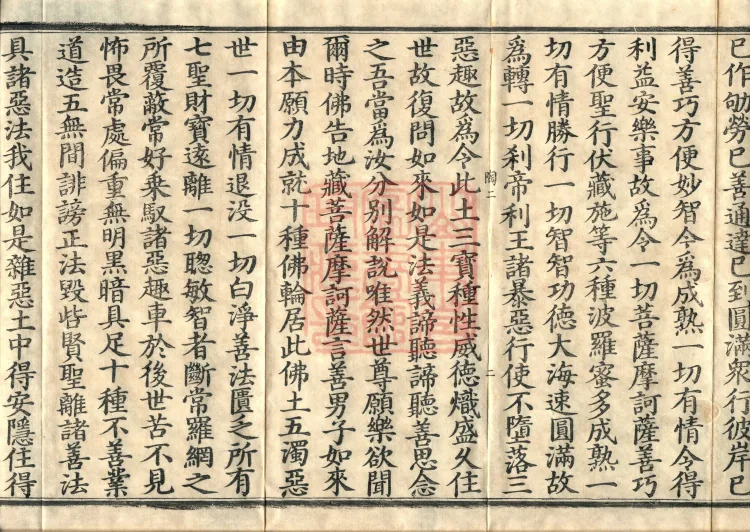 已作劬勞已善通達已到圓滿衆行彼岸已
得善巧方便妙智今爲成熟一切有情令得
利益安樂事故爲令一切菩薩摩訶薩善巧
方便聖行伏藏施等六種波羅蜜多成熟一
切有情勝行一切智智功德大海速圓滿故
爲轉一切刹帝利王諸暴惡行使不墮落三
陶二 二
惡趣故爲令此土三寶種性威德熾盛久住
世故復問如來如是法義諦聽諦聽善思念
之吾當爲汝分別解說唯然世尊願樂欲聞
爾時佛告地藏菩薩摩訶薩言善男子如來
由本願力成就十種佛輪居此佛土五濁惡
世一切有情退没一切白淨善法匱乏所有
七聖財寶遠離一切聦敏智者斷常羅網之
所覆蔽常好乘馭諸惡趣車於後世苦不見
怖畏常處偏重無明黑暗具足十種不善業
道造五無間誹謗正法毀呰賢聖離諸善法
具諸惡法我住如是雜惡土中得安隱住得